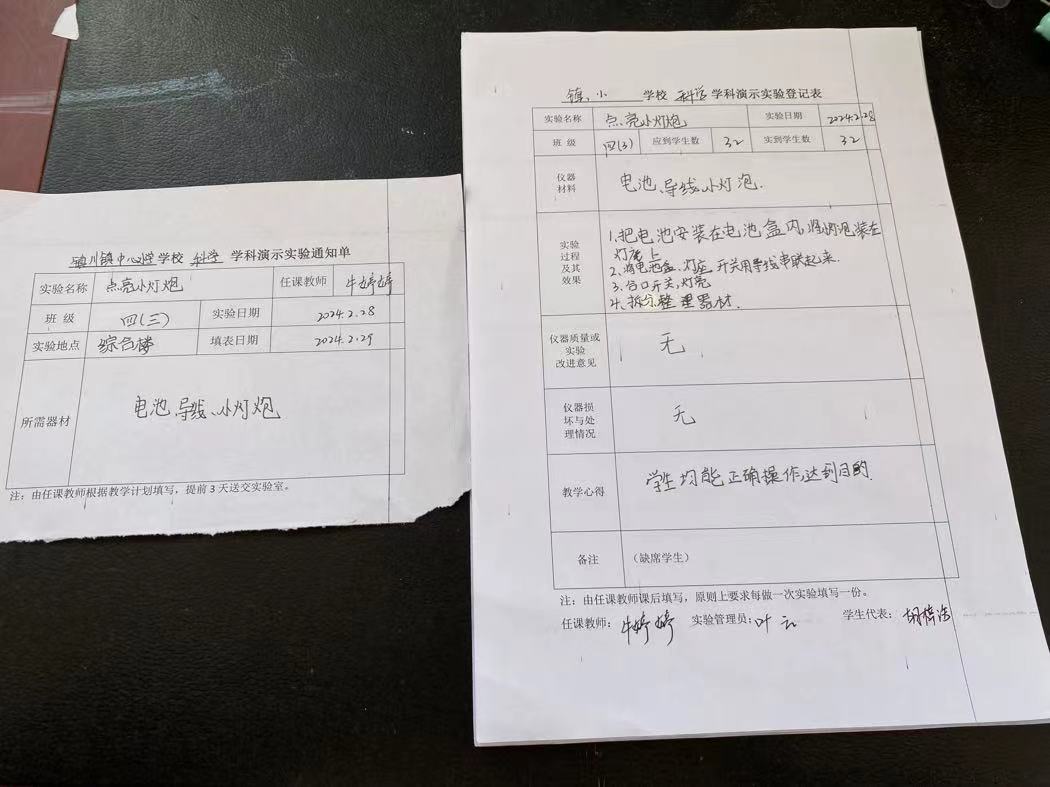 镇川镇中心小学学校 科学 学科演示实验通知单
实验名称 点亮小灯炮 任课教师 牛婷婷
班 级 四(三) 实验日期 2024.2.28
实验地点 综合楼 填表日期 2024.2.29
所需器材 电池、导线、小灯炮
注：由任课教师根据教学计划填写，提前3天送交实验室。
镇小 学校 科学 学科演示实验登记表
实验名称 点亮小灯炮 实验日期 2024.2.28
班 级 四(3) 应到学生数 32 实到学生数 32
仪器
材料
电池、导线、小灯泡.
实验
过程
及其
效果
1.把电池安装在电池盒内,将灯泡装在
灯座上
2.将电池盒、灯座、开关用导线串联起来.
3.合口开关,灯亮
4.拆分,整理器材.
仪器质量或
实验
改进意见
无
仪器损
坏与处
理情况
无
教学心得 学生均能正确操作,达到目的.
备注 （缺席学生）
注：由任课教师课后填写，原则上要求每做一次实验填写一份。
任课教师：牛婷婷 实验管理员：叶 学生代表：胡